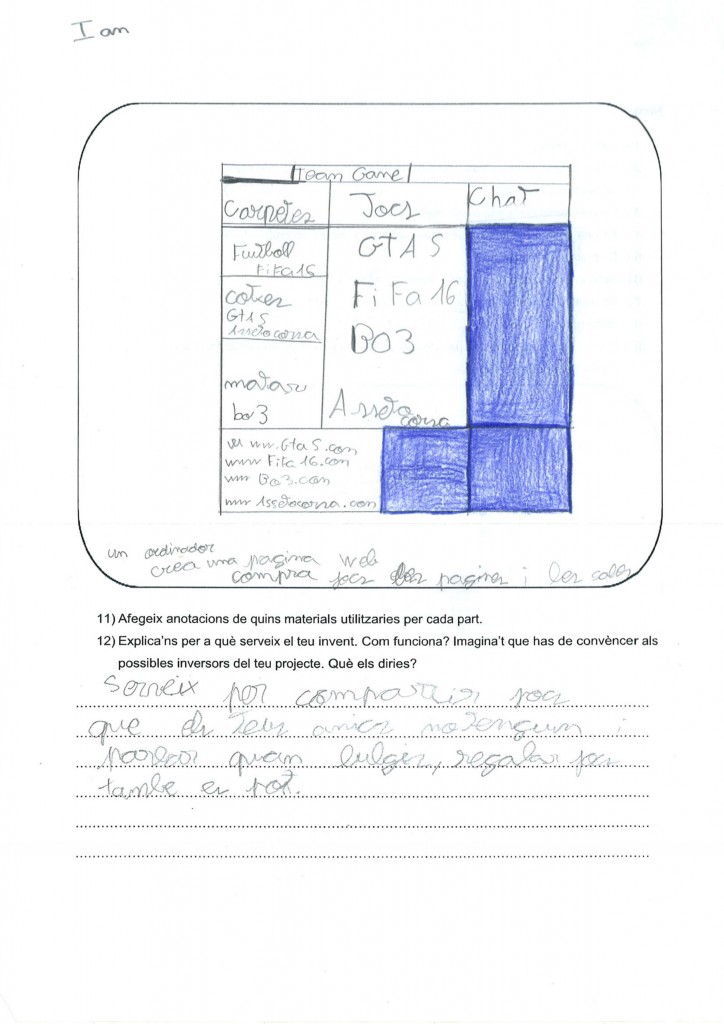 I am
Team Game
Carpetes Jocs Chat
Futboll
FiFa15
GTA 5
cotxes
Gta5
Assetocorsa
FiFa 16
BO3
matar
bo3
Asseto
corsa
www.Gta5.com
www Fifa 16.com
www Bo3.com
www Assetocorsa.com
un ordinador
crea una pagina web
compra jocs pagines i les
11) Afegeix anotacions de quins materials utilitzaries per cada part.
12) Explica'ns per a què serveix el teu invent. Com funciona? Imagina't que has de convèncer als
possibles inversors del teu projecte. Què els diries?
Serveix per compartir jocs
que els teus amics no tenguin i
parlar quan vulgis, regalar jocs
tambe es pot.